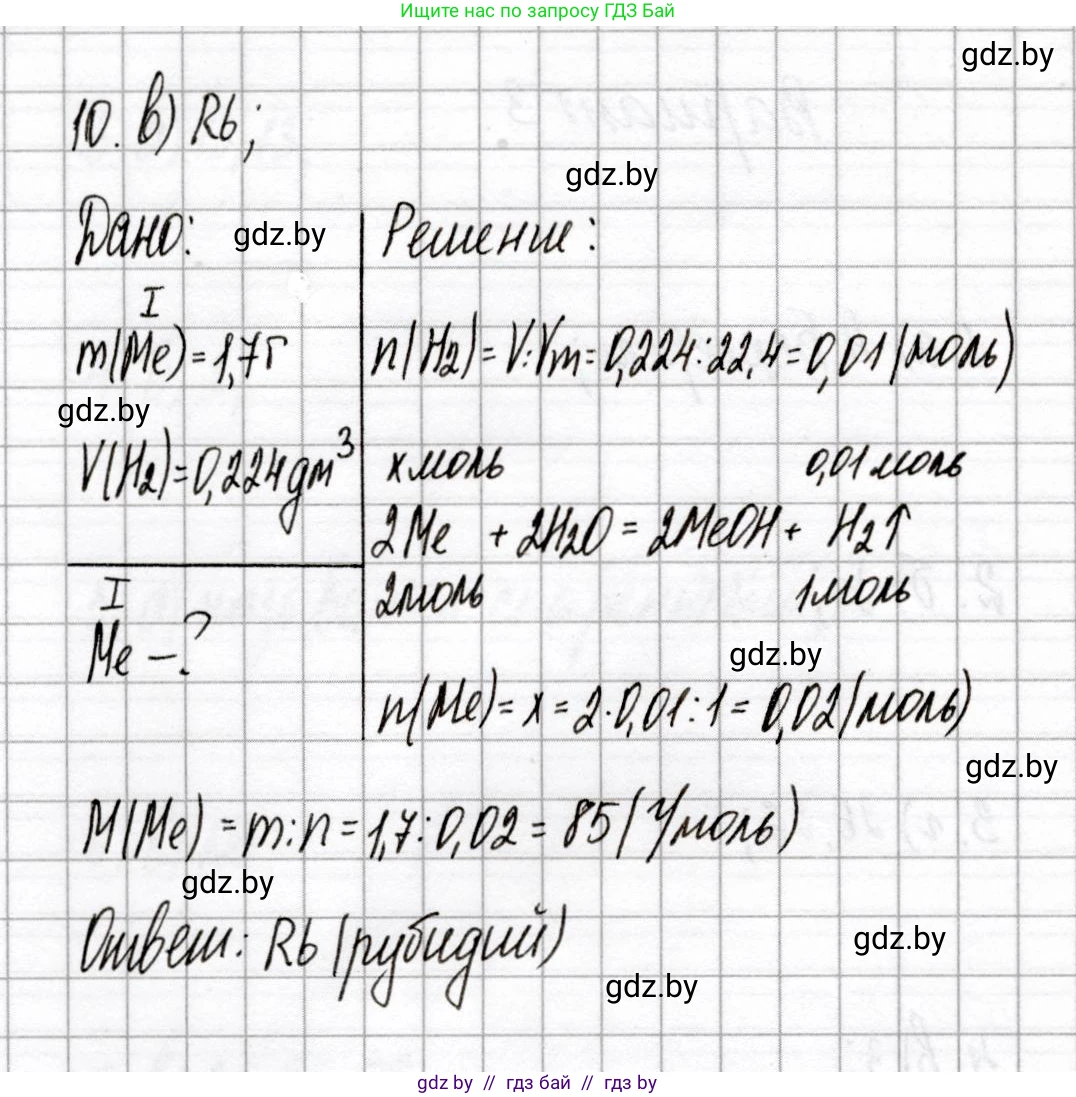 Ищите нас по запросу ГДЗ Бай
gdz.by
10. в) Rb;
gdz.by
Дано: gdz.by Решение:
I
m(Me)=1,7г n(H2)=V:Vm=0,224:22,4=0,01(моль)
gdz.by
V(H2)=0,224дм³ x моль 0,01 моль
2Me + 2H2O = 2MeOH + H2↑
I 2моль 1моль
Me – ?
gdz.by
n(Me)= x = 2·0,01:1 = 0,02(моль)
gdz.by
M(Me) = m:n = 1,7:0,02 = 85(г/моль)
gdz.by
Ответ: Rb (рубидий)
gdz.by
gdz.by
gdz by // гдз бай // гдз by